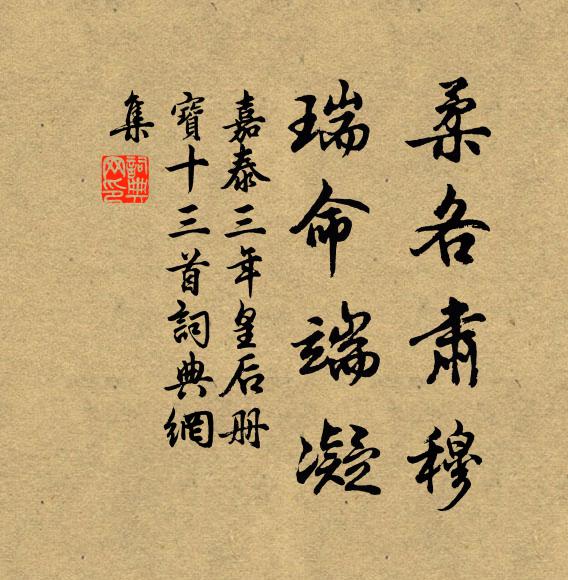 柔各肅穆
瑞命端凝
嘉泰三年皇后册
寶十三首詞典網
集
詞典
网印